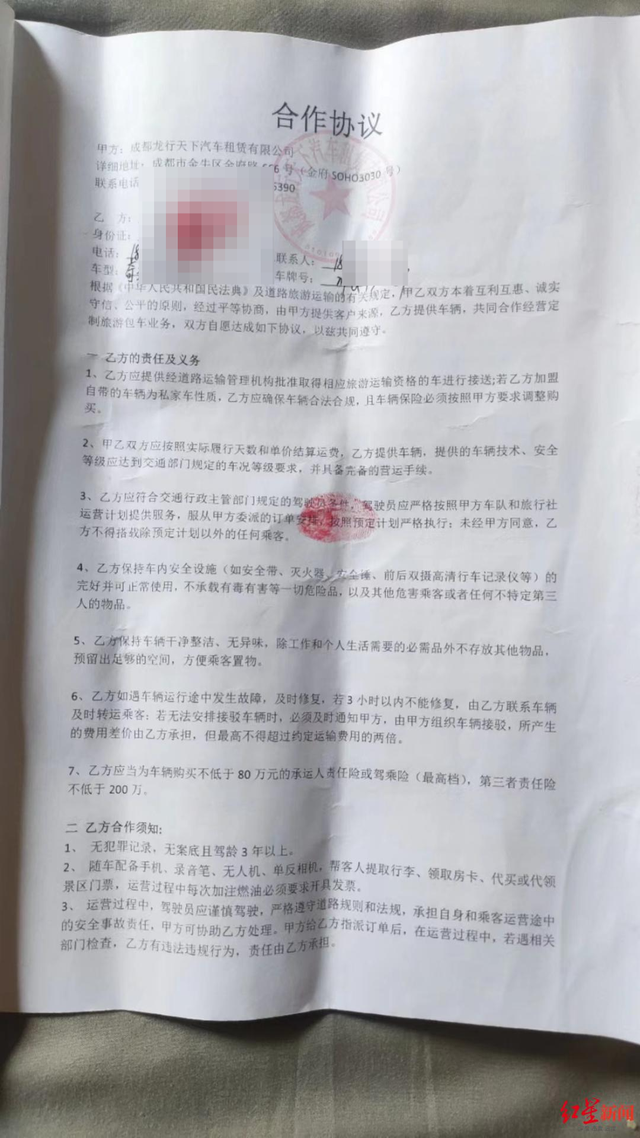 合作协议
甲方：成都龙行天下汽车租赁有限公司
详细地址：成都市金牛区金府路 6号（金府 SOHO3030 号）
联系电话 5390
乙 方：
身份证： 联系人：18
电话：18 车牌号：
车型：
根据《中华人民共和国民法典》及道路旅游运输的有关规定，甲乙双方本着互利互惠、诚实
守信、公平的原则，经过平等协商，由甲方提供客户来源，乙方提供车辆，共同合作经营定
制旅游包车业务，双方自愿达成如下协议，以兹共同遵守。
一 乙方的责任及义务
1、乙方应提供经道路运输管理机构批准取得相应旅游运输资格的车进行接送;若乙方加盟
自带的车辆为私家车性质，乙方应确保车辆合法合规，且车辆保险必须按照甲方要求调整购
买。
2、甲乙双方应按照实际履行天数和单价结算运费，乙方提供车辆，提供的车辆技术、安全
等级应达到交通部门规定的车况等级要求，并具备完备的营运手续。
3、乙方应符合交通行政主管部门规定的驾驶 驾驶员应严格按照甲方车队和旅行社
运营计划提供服务，服从甲方委派的订单安排，按照预定计划严格执行；未经甲方同意，乙
方不得搭载除预定计划以外的任何乘客。
4、乙方保持车内安全设施（如安全带、灭火器、安全锤、前后双摄高清行车记录仪等）的
完好并可正常使用，不承载有毒有害等一切危险品，以及其他危害乘客或者任何不特定第三
人的物品。
5、乙方保持车辆干净整洁、无异味，除工作和个人生活需要的必需品外不存放其他物品，
预留出足够的空间，方便乘客置物。
6、乙方如遇车辆运行途中发生故障，及时修复，若 3 小时以内不能修复，由乙方联系车辆
及时转运乘客；若无法安排接驳车辆时，必须及时通知甲方，由甲方组织车辆接驳，所产生
的费用差价由乙方承担，但最高不得超过约定运输费用的两倍。
7、乙方应当为车辆购买不低于 80 万元的承运人责任险或驾乘险（最高档），第三者责任险
不低于 200 万。
二 乙方合作须知:
1、 无犯罪记录，无案底且驾龄 3 年以上。
2、 随车配备手机、录音笔、无人机、单反相机，帮客人提取行李、领取房卡、代买或代领
景区门票，运营过程中每次加注燃油必须要求开具发票。
3、 运营过程中，驾驶员应谨慎驾驶，严格遵守道路规则和法规，承担自身和乘客运营途中
的安全事故责任，甲方可协助乙方处理。甲方给乙方指派订单后，在运营过程中，若遇相关
部门检查，乙方有违法违规行为，责任由乙方承担。
红星新闻